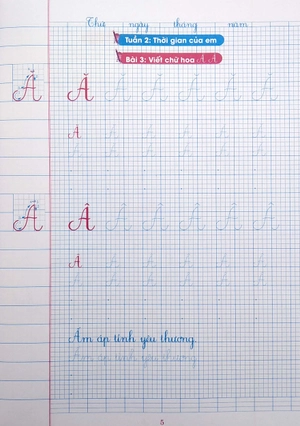 Thứ ngày tháng năm
Tuần 2: Thời gian của em
Bài 3: Viết chữ hoa Ă Â
Ă Ă Ă Ă Ă Ă Ă
Ă Ă Ă Ă Ă Ă
Ă Ă Ă Ă Ă Ă
Â Â Â Â Â Â Â
Â Â Â Â Â Â
Â Â Â Â Â Â
Ấm áp tình yêu thương.
Ấm áp tình yêu thương.
5